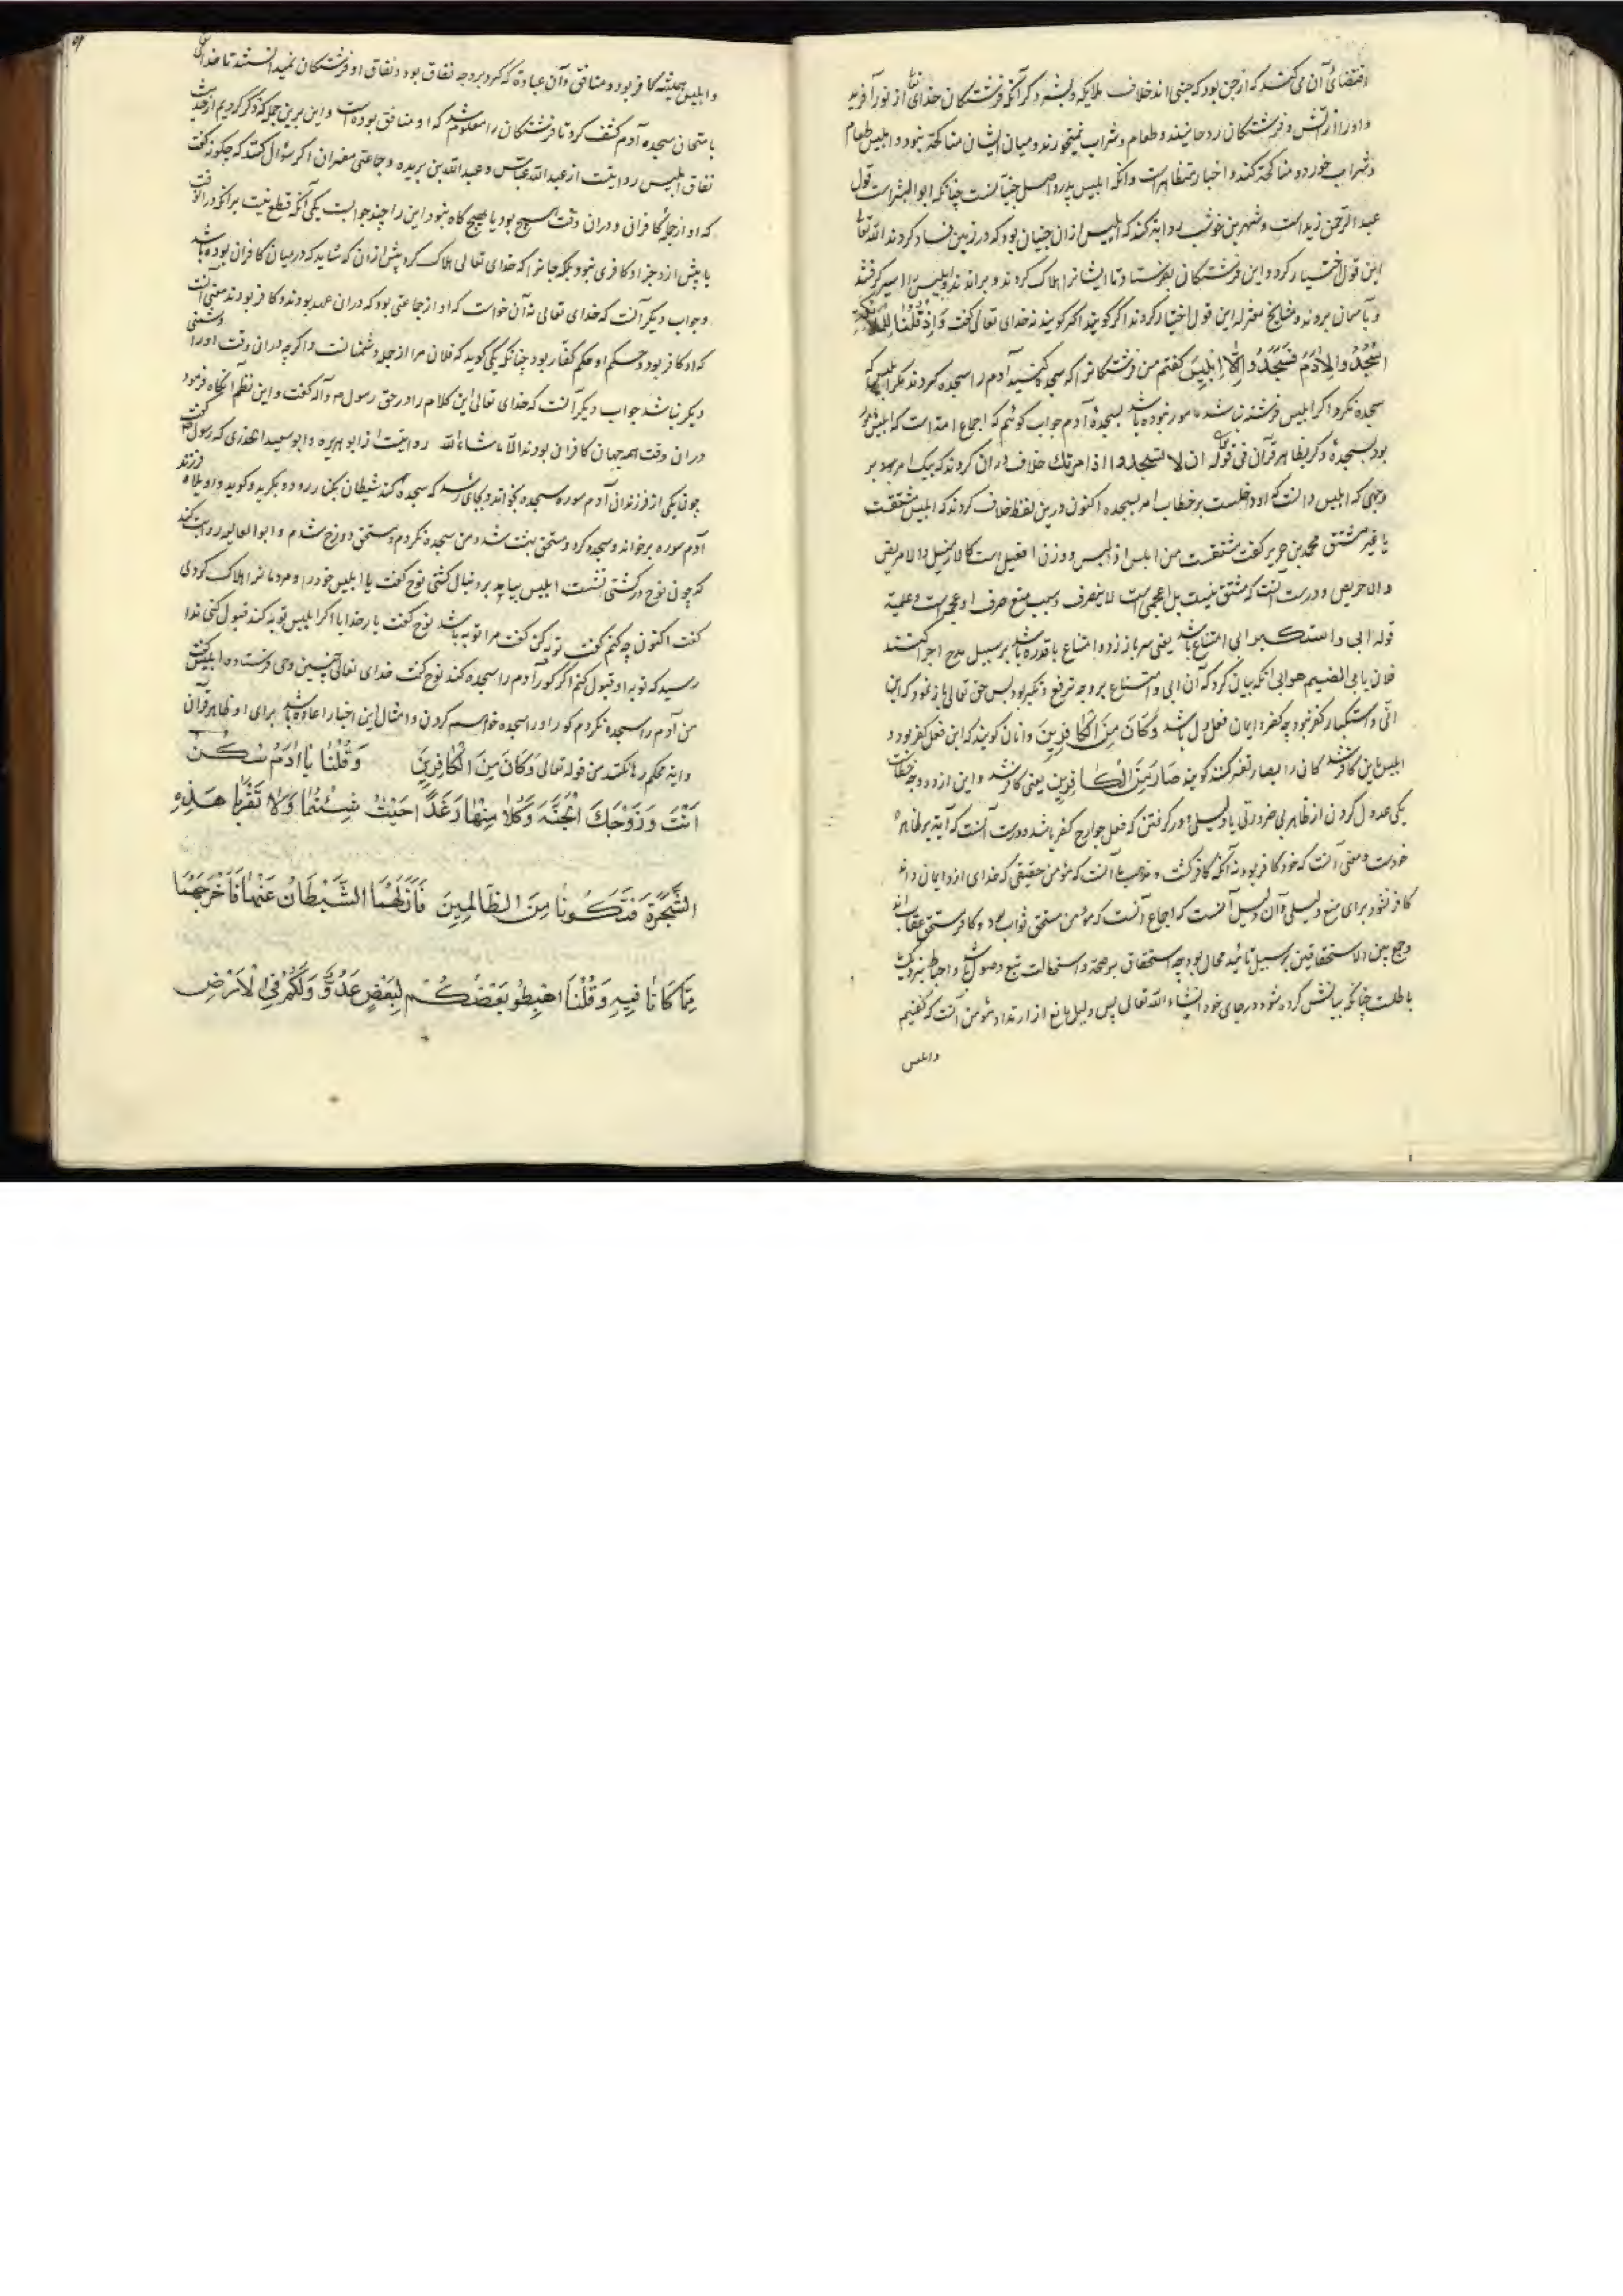 اقتضای آن می کند که از جن بود که جنی اند خلاف ملایکه و بشر و دکر آنکه فرشتکان خدای تعالی از نور آفرید
و اورا از آتش و فرشتکان روحانیند و طعام و شراب نمیخورند و میان ایشان مناکحة نبود و ابلیس طعام
و شراب خورد و مناکحة کند و اخبار متظاهر است و آنکه ابلیس پدر و اصل جنیانست چنانکه ابو البشر است قول
عبد الرحمن زید است و شهر بن خوشب روایة کند که ابلیس از ان جنیان بود که در زمین فساد کردند الله تعالی
این قول اختیار کرد و این فرشتکان بفرستاد تا ایشانرا هلاک کردند و براندند و ابلیس را اسیر گرفتند
و بآسمان بردند و مشایخ معتزله این قول اختیار کردند اگر کویند نه خدای تعالی کفت وَاِذْ قُلْنَا لِلْمَلٰئِکَةِ
اسْجُدُوا لِاٰدَمَ فَسَجَدُوا اِلَّا اِبْلِیسَ کفتم من فرشتکانرا که سجده کنید آدم را سجده کردند مکر ابلیس که
سجده نکرد اکر ابلیس فرشته نباشد مامور نبوده باشد بسجدۀ آدم جواب کوئیم که اجماع امت است که ابلیس مامور
بود بسجدۀ و کر بظاهر قرآن فی قوله تعالی ان لا تسجد اذ امرتک خلاف در ان کردند که بیک امر بود بر
وجهی که ابلیس دانست که او داخلست بر خطاب امر بسجده اکنون درین لفظ خلاف کردند که ابلیس مشتقست
یا غیر مشتق محمد بن جریر کفت مشتقست من ابلس از ابلیس و وزن افعیل است کالازمیل و الامریض
و الاحریص و درست آنست که مشتق نیست بل اعجمی است لا ینصرف و سبب منع صرف او عجمه است و علمیة
قوله ابی و استکبر ابی امتناع باشد یعنی سر باز زد و امتناع با قدره باشد بر سبیل مدح اجرا کنند
فلان یابی الضیم هو ابی آنکه بیان کرد که آن ابی و امتناع بر وجه ترفع و تکبر بود پس حق تعالی باز نمود که این
ابی و استکبار کفر نبود چه کفر و ایمان فعل دل باشد وَکَانَ مِنَ الْکَافِرِینَ و انان کویند که این فعل کفر بود و
ابلیس باین کافر شد کانی را بصار تفسیر کنند کویند صَارَ مِنَ الْکَافِرِین یعنی کافر شد و این از دو وجه خطاست
یکی عدول کردن از ظاهر بی ضرورتی یا دلیلی و دیکر کفتن که فعل جوارح کفر باشد و درست آنست که آیة بر ظاهر
خودست و معنی آنست که خود کافر بود نه آنکه کافر کشت و مذهب ما آنست که مؤمن حقیقی که خدای ازو ایمان داند
کافر نشود برای منع دلیلی و آن دلیل آنست که اجماع است که مؤمن مستحق ثواب بود و کافر مستحق عقاب ابد
و جمع بین الاستحقاقین بر سبیل تأئید محال بود چه استحقاق بر صحة و استحالت تبع وصول باشد و احباط بنزدیک ما
باطلست چنانکه بیانش کرده شود در جای خود انشاء الله تعالی پس دلیل مانع از ارتداد مؤمن آنست که کفتیم
و ابلیس
و ابلیس همیشه کافر بود و منافق و آن عبادة که کرد بر وجه نفاق بود و نفاق او فرشتکان نمیدانستند تا خدای تعالی
با متحان سجده آدم کشف کرد تا فرشتکان را معلوم شد که او منافق بوده است و این برین جمله که ذکر کردیم از حدیث
نفاق ابلیس روایتست از عبد الله عباس و عبد الله بن بریده و جماعتی مفسران اکر سؤال کنند که چکونه کفت
که او از جمله کافران و دران وقت هیچ بود یا هیچ کاه نبود این را چند جوابست یکی آنکه قطع نیست برانکه دران وقت
یا پیش از و جز او کافری نبود بلکه جانرا که خدای تعالی هلاک کرد پیش ازان که شاید که در میان کافران بوده باشد
و جواب دیکر آنست که خدای تعالی نه آن خواست که او از جماعتی بود که دران عهد بودند و کافر بودند معنی آنست
که او کافر بود و حکم او حکم کفار بود چنانکه یکی کوید که فلان مرا از جمله دشمنانست و اکر چه دران وقت اورا دشمنی
دیکر نباشد جواب دیکر آنست که خدای تعالی این کلام را در حق رسول م و آله کفت و این نظم آنکاه فرمود
دران وقت همه جهان کافران بودند الا ما شاء الله روایتست از ابو هریره و ابو سعید الخدری که رسول کفت
چون یکی از فرزندانی آدم سوره سجده بخواند و بجای رسد که سجده کند شیطان بکنار رود و بکرید و کوید واویلاه فرزند
آدم سوره بر خواند و سجده کرد و مستحق بهشت شد و من سجده نکردم و مستحق دوزخ شدم و ابو العالیه روایت کند
که چون نوح در کشتی نشست ابلیس بیامد بر دنبال کشتی نوح کفت یا ابلیس خود را و مردمانرا هلاک کردی
کفت اکنون چه کنم کفت توبه کن کفت مرا توبه باشد نوح کفت بار خدایا اکر ابلیس توبه کند قبول کنی ندا
رسید که توبه او قبول کنم اکر کور آدم را سجده کند نوح کفت خدای تعالی چنین وحی فرستاد ه ابلیس کفت
من آدم را سجده نکردم کور اورا سجده خواهم کردن و امثال این اخبار اعاده باشد برای او ظاهر قرآن
و ایة محکم رها نکند من قوله تعالی وَکَانَ مِنَ الْکَافِرِینَ وَقُلْنَا یَا اٰدَمُ اسْکُنْ
اَنْتَ وَزَوْجُكَ الْجَنَّةَ وَکُلَا مِنْهَا رَغَدًا حَیْثُ شِئْتُمَا وَلَا تَقْرَبَا هٰذِهِ
الشَّجَرَةَ فَتَکُونَا مِنَ الظَّالِمِینَ فَاَزَلَّهُمَا الشَّیْطَانُ عَنْهَا فَاَخْرَجَهُمَا
مِمَّا کَانَا فِیهِ وَقُلْنَا اهْبِطُو بَعْضُکُمْ لِبَعْضٍ عَدُوٌّ وَلَکُمْ فِی الْاَرْضِ